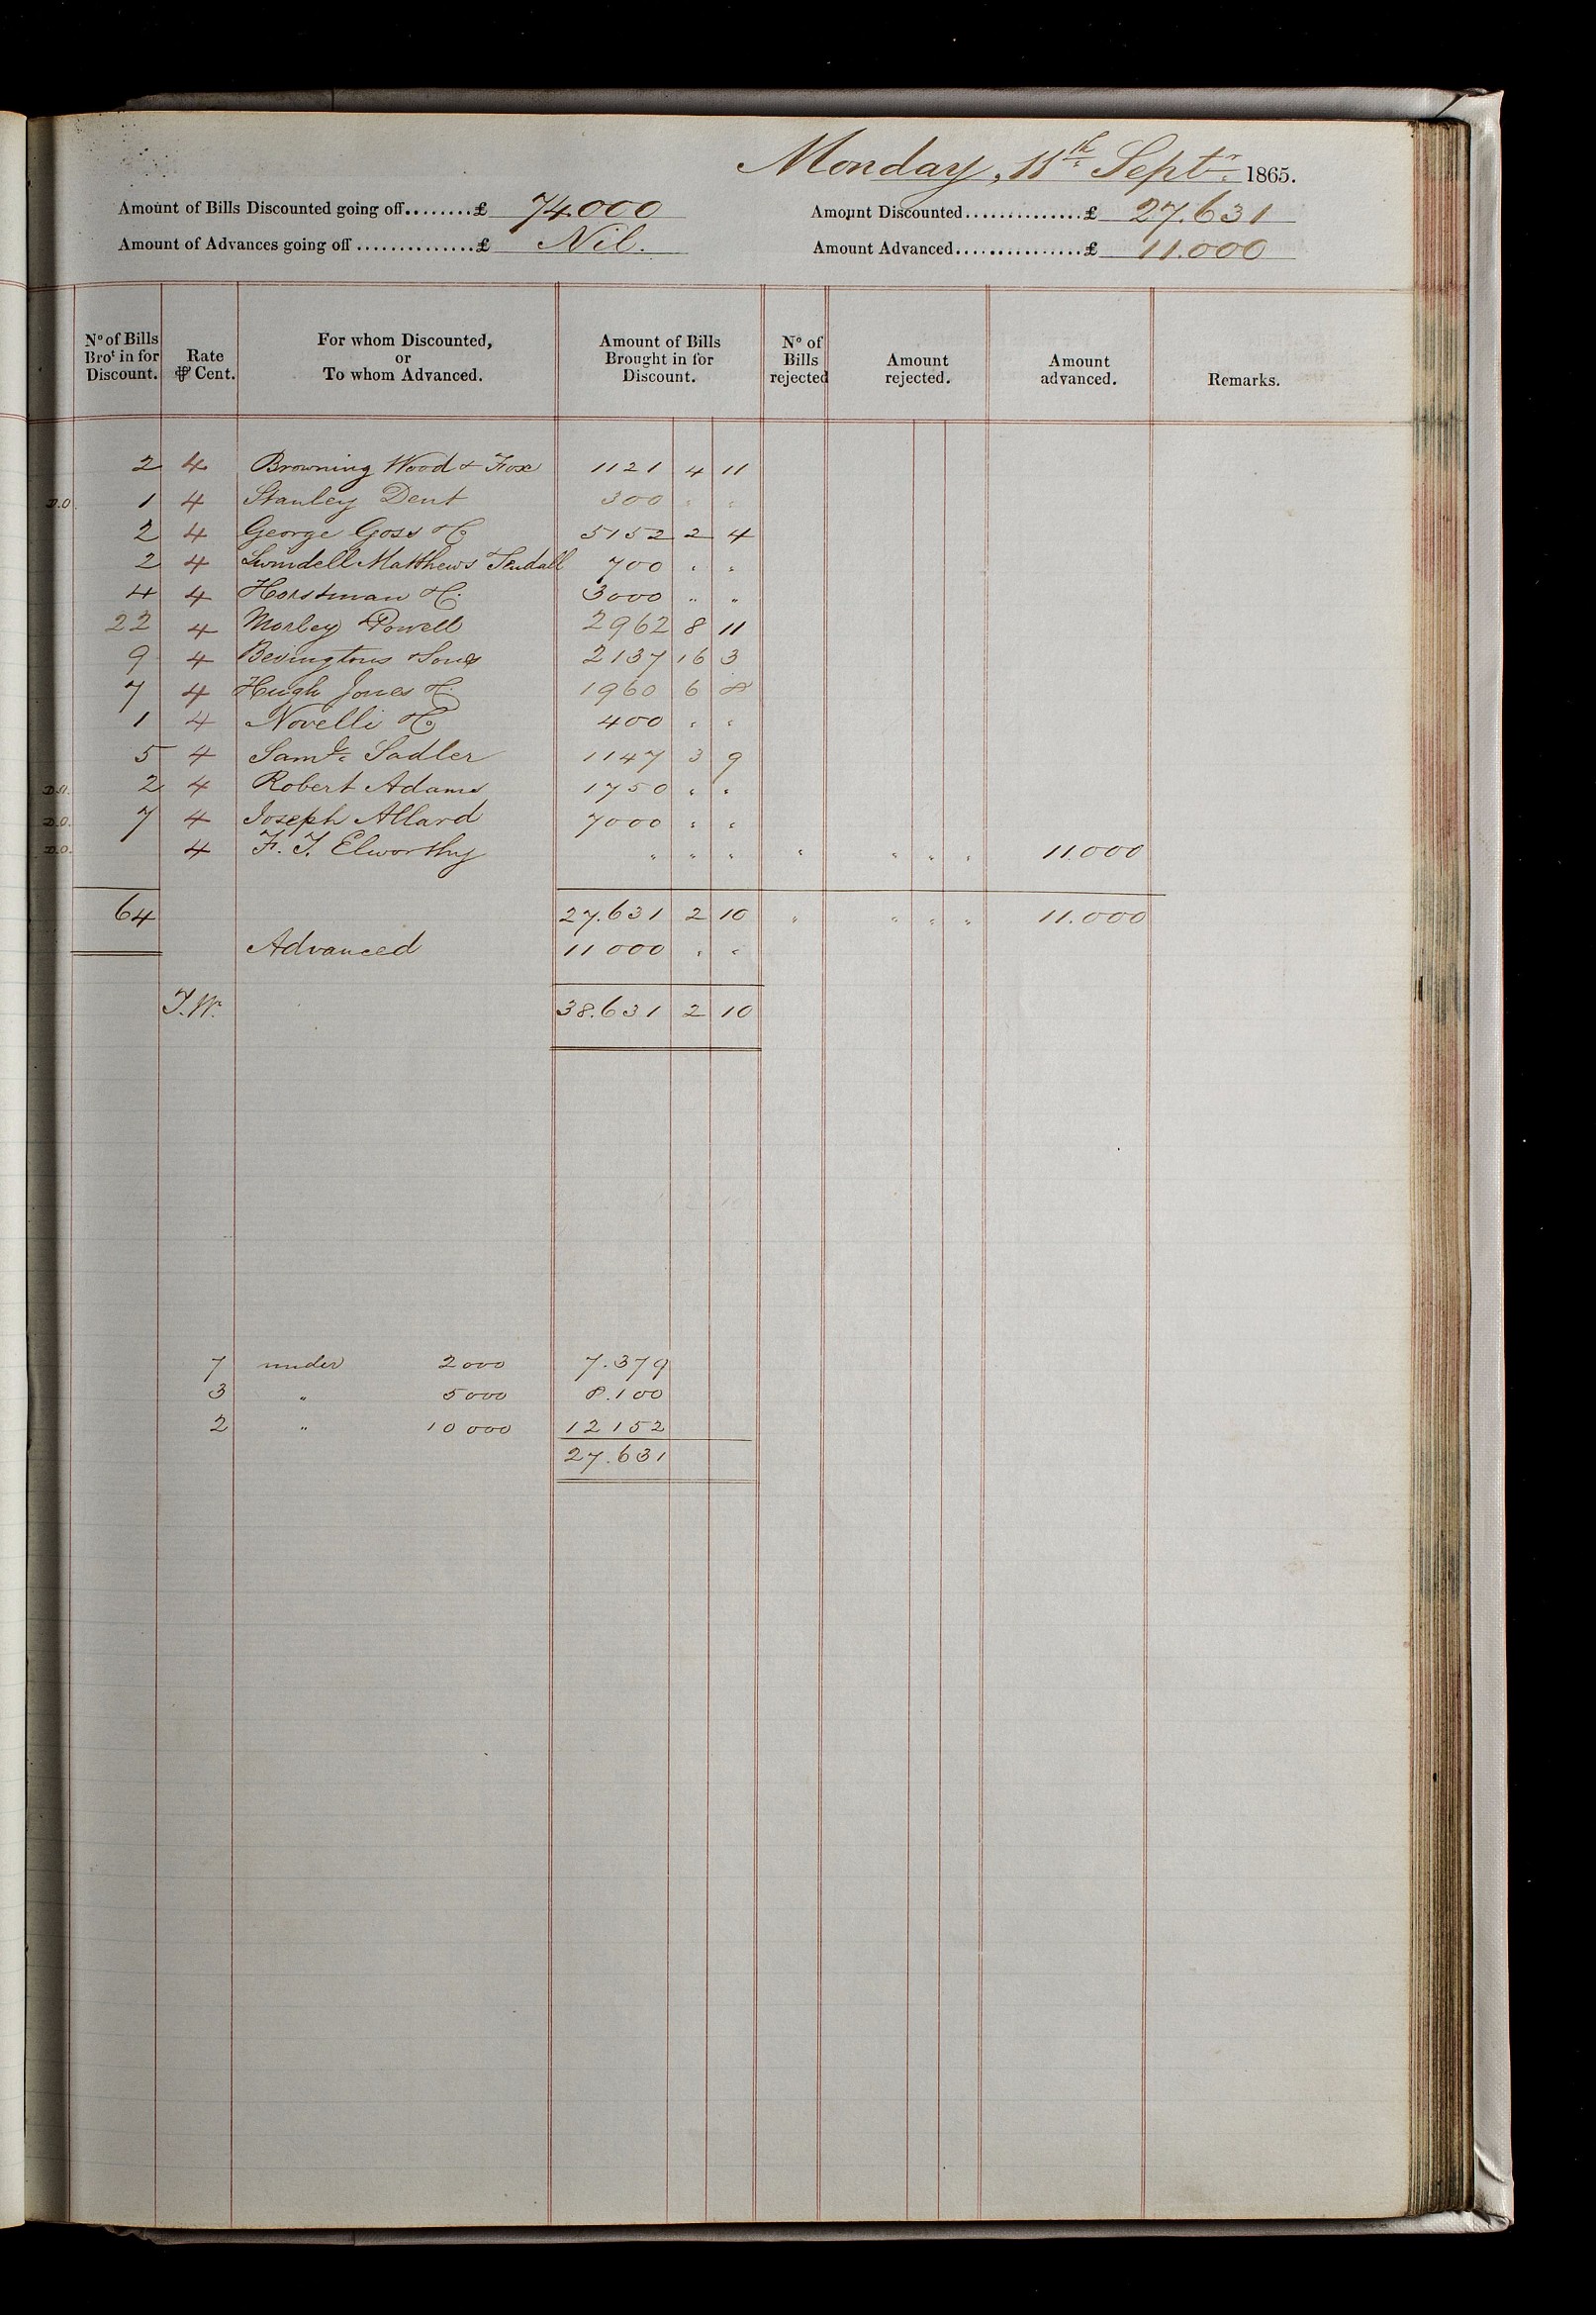 Monday, 11th Septr. 1865.
Amount of Bills Discounted going off........£ 74.000 Amount Discounted..............£ 27.631
Amount of Advances going off..............£ Nil. Amount Advanced...............£ 11.000
No of Bills Brot in for Discount. Rate ⅌ Cent. For whom Discounted, or To whom Advanced. Amount of Bills Brought in for Discount. No of Bills rejected Amount rejected. Amount advanced. Remarks.
2 4 Browning Wood & Fox 1121 4 11
D.O. 1 4 Stanley Dent 300 " "
2 4 George Goss & C 5152 2 4
2 4 Matthews 700 " "
4 4 Horstman & C. 3000 " "
22 4 Morley Powell 2962 8 11
9 4 Bevingtons & Sons 2137 16 3
7 4 Hugh Jones & C. 1960 6 8
1 4 Novelli & C 400 " "
5 4 Saml. Sadler 1147 3 9
2 4 Robert Adams 1750 " "
D.O. 7 4 Joseph Allard 7000 " "
D.O. 4 F. T. Elworthy " " " " " " " 11.000
64 27.631 2 10 " " " " 11.000
Advanced 11000 " "
T.W. 38.631 2 10
7 under 2000 7.379
3 " 5000 8.100
2 " 10000 12152
27.631